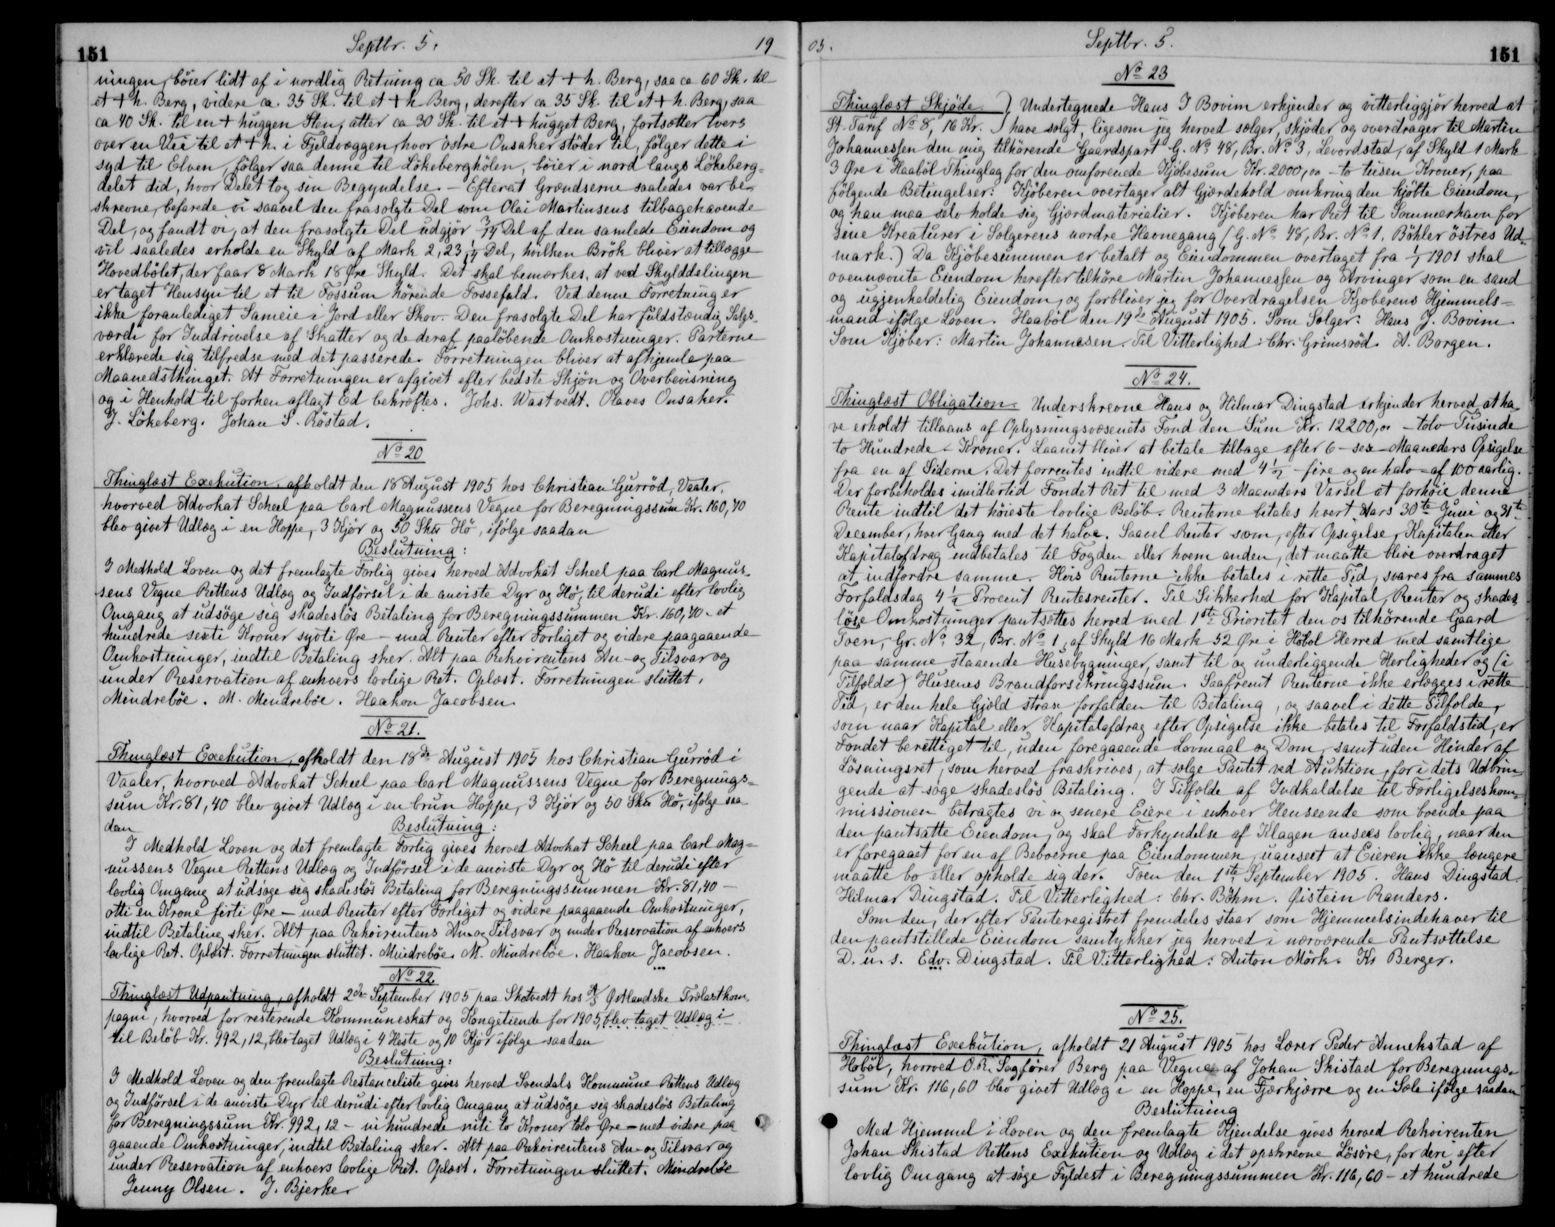 151
Septbr. 5.
19
ningen, böier lidt af i nordlig Retning ca 50 Sk. til et + h. Berg, saa ca 60 Sk. til
et + h. Berg, videre ca. 35 Sk. til et + h. Berg, derefter ca 35 Sk. til et + h. Berg, saa
ca 40 Sk. til en + huggen Sten, atter ca 30 Sk. til et + hugget Berg, fortsætter tvers
over en Vei til et + h. i Fjeldvæggen, hvor östre Onsaker stöder til, fölger dette i
syd til Elven, fölger saa denne til Lökeberghölen, böier i nord langs Lökeberg-
delet did, hvor Delet tog sin Begyndelse. – Efterat Grændserne saaledes var be-
skrevne, befarede vi saavel den frasolgte Del som Olai Martinsens tilbagehavende
Del, og fandt vi, at den frasolgte Del udgjör 3/14 Del af den samlede Eiendom og
vil saaledes erholde en Skyld af Mark 2,23 1/4 Del, hvilken Brök bliver at tillægge
Hovedbölet, der faar 8 Mark 18 Øre Skyld. Det skal bemærkes, at ved Skylddelingen
er taget Hensyn til et til Fossum hörende Fossefald. Ved denne Forretning er
ikke foranlediget Sameie i Jord eller Skov. Den frasolgte Del har fuldstændig Salgs-
værdi for Inddrivelse af Skatter og de deraf paalöbende Omkostninger. Parterne
erklærede sig tilfredse med det passerede. Forretningen bliver at afhjemle paa
Maanedsthinget. At Forretningen er afgivet efter bedste Skjön og Overbevisning
og i Henhold til forhen aflagt Ed bekræftes. Johs. Wastvedt. Olaves Onsaker.
J. Lökeberg. Johan S. Röstad.
No 20
Thinglæst Exekution, afholdt den 18 August 1905 hos Christian Gurröd, Vaaler,
hvorved Advokat Scheel paa Carl Magnussens Vegne for Beregningssum Kr. 160,70
blev givet Udlæg i en Hoppe, 3 Kjör og 50 Skr Hö, ifölge saadan
Beslutning:
I Medhold Loven og det fremlagte Forlig gives herved Advokat Scheel paa Carl Magnus-
sens Vegne Rettens Udlæg og Indförsel i de anviste Dyr og Hö, til derudi efter lovlig
Omgang at udsöge sig skadeslös Betaling for Beregningssummen Kr. 160,70 – et
hundrede sexti Kroner sytti Øre – med Renter efter Forliget og videre paagaaende
Omkostninger, indtil Betaling sker. Alt paa Rekvirentens An- og Tilsvar og
under Reservation af enhvers lovlige Ret. Oplæst. Forretningen sluttet.
Mindreböe. M. Mindreböe. Haakon Jacobsen.
No 21.
Thinglæst Exekution, afholdt den 18de August 1905 hos Christian Gurröd i
Vaaler, hvorved Advokat Scheel paa Carl Magnussens Vegne for Beregnings-
sum Kr. 81,40 blev givet Udlæg i en brun Hoppe, 3 Kjör og 50 Skr Hö, ifölge saa
dan
Beslutning:
I Medhold Loven og det fremlagte Forlig gives herved Advokat Scheel paa Carl Mag-
nussens Vegne Rettens Udlæg og Indförsel i de anviste Dyr og Hö til derudi efter
lovlig Omgang at udsöge sig skadeslös Betaling for Beregningssummen Kr. 81,40 –
otti en Krone firti Øre – med Renter efter Forliget og videre paagaaende Omkostninger,
indtil Betaling sker. Alt paa Rekvirentens An- og Tilsvar og under Reservation af enhvers
lovlige Ret. Oplæst. Forretningen sluttet. Mindreböe. M. Mindreböe. Haakon Jacobsen.
No 22.
Thinglæst Udpantning, afholdt 2de September 1905 paa Skotvedt hos A/S Østlandske Trælastkom-
pagni, hvorved for resterende Kommuneskat og Kongetiende for 1905, blev taget Udlæg i
til Beløb Kr. 992,12, blev taget Udlæg i 4 Heste og 10 Kjör ifölge saadan
Beslutning:
I Medhold Loven og den fremlagte Restanceliste gives herved Soendals Kommune Rettens Udlæg
og Indförsel i de anviste Dyr til derudi efter lovlig Omgang at udsöge sig skadeslös Betaling
for Beregningssum Kr. 992,12 – ni hundrede nitti to Kroner tolv Øre – med videre paa
gaaende Omkostninger, indtil Betaling sker. Alt paa Rekvirentens An- og Tilsvar og
under Reservation af enhvers lovlige Ret. Oplæst. Forretningen sluttet. Mindreböe
Jenny Olsen. J. Bjerke.
05.
Septbr. 5.
151
No 23
Thinglæst Skjøde
St. Taxf No 8, 16 Kr.
) Undertegnede Hans J Bovim erkjender og vitterliggjör herved at
have solgt, ligesom jeg herved sælger, skjöder og overdrager til Martin
Johannessen den mig tilhörende Gaardspart G. No 48, Br. No 3, Levordstad, af Skyld 1 Mark
3 Øre i Haaböl Thinglag for den omforenede Kjöbesum Kr. 2000,00 – to tusen Kroner, paa
fölgende Betingelser: Kjöberen overtager alt Gjærdehold omkring den kjöbte Eiendom,
og han maa selv holde sig Gjærdmaterialier. Kjöberen har Ret til Sommerhavn for
sine Kreaturer i Sælgerens nordre Havnegang (G. No 48, Br. No 1. Böhler östres Ud-
mark.) Da Kjöbesummen er betalt og Eiendommen overtaget fra 1/1 1901 skal
ovennævnte Eiendom herefter tilhöre Martin Johannessen og Arvinger som en sand
og ugjenkaldelig Eiendom, og forbliver jeg for Overdragelsen Kjöberens Hjemmels-
mand ifölge Loven. Haaböl den 19de August 1905. Som Sælger: Hans J. Bovim.
Som Kjöber: Martin Johannesen. Til Vitterlighed: Chr. Grimsröd. A. Borgen.
No 24.
Thinglæst Obligation. Underskrevne Hans og Hilmar Dingstad erkjender herved at ha-
ve erholdt tillaans af Oplysningsvæsenets Fond den Sum Kr. 12200,00 – tolv Tusinde
to Hundrede – Kroner. Laanet bliver at betale tilbage efter 6 – sex – Maaneders Opsigelse
fra en af Siderne. Det forrentes indtil videre med 4 1/2 – fire og en halv – af 100 aarlig.
Der forbeholdes imidlertid Fondet Ret til med 3 Maaneders Varsel at forhöie denne
Rente indtil det höieste lovlige Belöb. Renterne betales hvert Aars 30te Juni og 31te
December, hver Gang med det halve. Saavel Renter som, efter Opsigelse, Kapitalen eller
Kapitalafdrag indbetales til Fogden eller hvem anden, det maatte blive overdraget
at indfordre samme. Hvis Renterne ikke betales i rette Tid, svares fra sammes
Forfaldsdag 4 1/2 Procent Rentesrenter. Til Sikkerhed for Kapital, Renter og skades-
löse Omkostninger pantsættes herved med 1ste Prioritet den os tilhörende Gaard
Tven, Gr. No 32, Br. No 1, af Skyld 16 Mark 52 Øre i Haböl Herred med samtlige
paa samme staaende Husebygninger, samt til og underliggende Herligheder og (i
Tilfælde) Husenes Brandforsikringssum. Saafremt Renterne ikke erlægges i rette
Tid, er den hele Gjæld strax forfalden til Betaling, og saavel i dette Tilfælde,
som naar Kapital eller Kapitalafdrag efter Opsigelse ikke betales til Forfaldstid, er
Fondet berettiget til, uden foregaaende Lovmaal og Dom, samt uden Hinder af
Løsningsret, som herved fraskrives, at sælge Pantet ved Auktion, for i dets Udbrin-
gende at söge skadeslös Betaling. I Tilfælde af Indkaldelse til Forligelseskom-
missionen betragtes vi og senere Eiere i enhver Henseende som boende paa
den pantsatte Eiendom, og skal Forkyndelse af Klagen ansees lovlig, naar den
er foregaaet for en af Beboerne paa Eiendommen, uanseet at Eieren ikke længere
maatte bo eller opholde sig der. Tven den 1ste September 1905. Hans Dingstad.
Hilmar Dingstad. Til Vitterlighed: Chr. Böhm. Øistein Randers.
Som den, der efter Panteregistret fremdeles staar som Hjemmelsindehaver til
den pantstillede Eiendom samtykker jeg herved i nærværende Pantsættelse
D. u. s. Edv. Dingstad. Til Vitterlighed: Anton Mörk. Kr Berger.
No 25.
Thinglæst Exekution, afholdt 21 August 1905 hos Lærer Peder Annekstad af
Hoböl, hvorved O.R. Sagförer Berg paa Vegne af Johan Skistad for Beregnings-
sum Kr. 116,60 blev givet Udlæg i en Hoppe, en Fjærkjærre og en Sæle ifölge saadan
Beslutning
Med Hjemmel i Loven og den fremlagte Kjendelse gives herved Rekvirenten
Johan Skistad Rettens Exekution og Udlæg i det opskrevne Lösöre, for deri efter
lovlig Omgang at söge Fyldest i Beregningssummen Kr. 116,60 – et hundrede